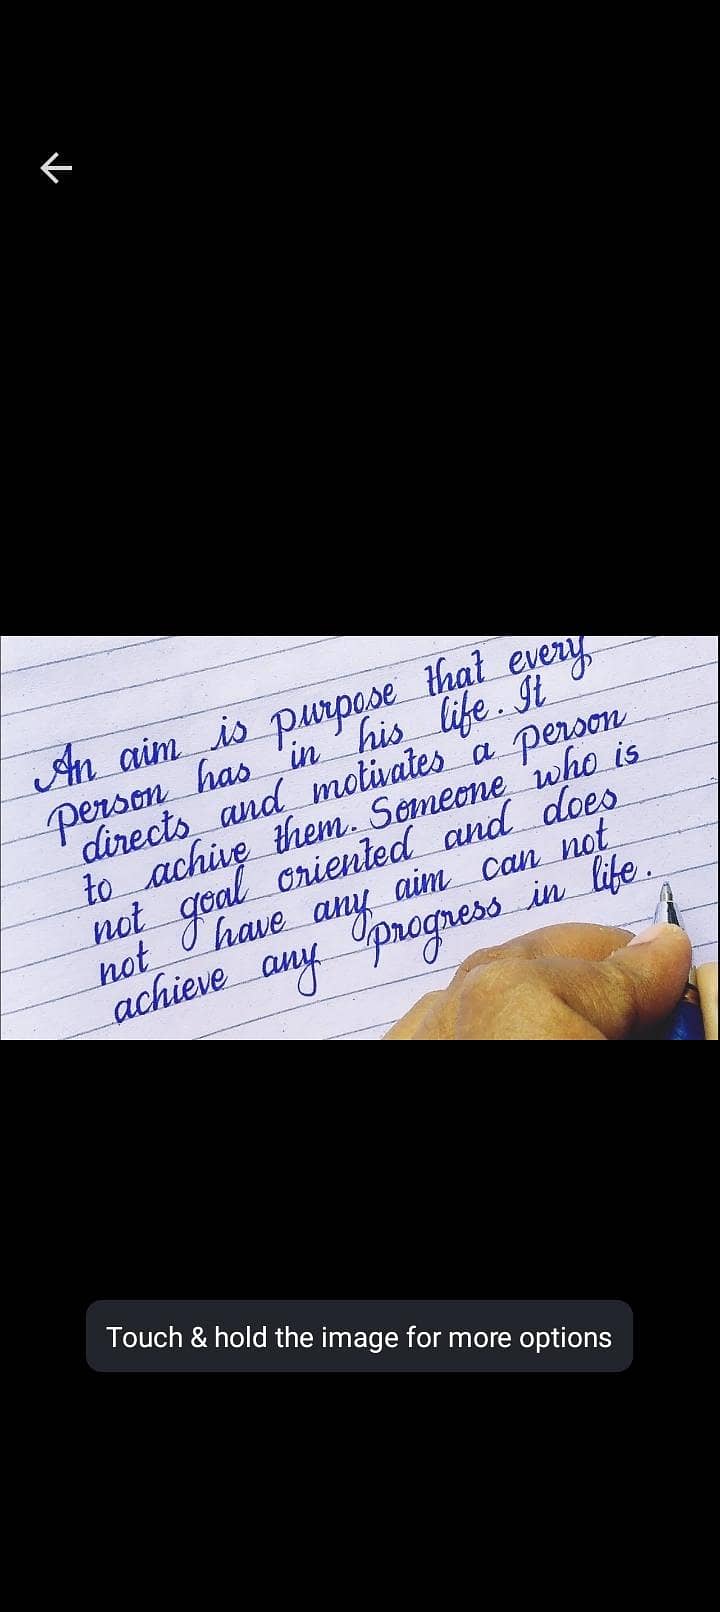 An aim is purpose that every
person has in his life. It
directs and motivates a person
to achive them. Someone who is
not goal oriented and does
not have any aim can not
achieve any progress in life.
Touch & hold the image for more options